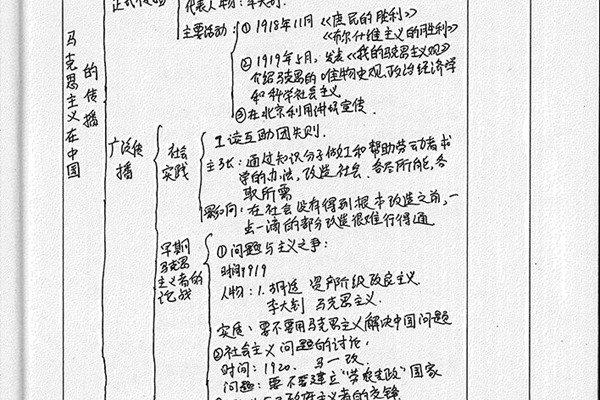 代表人物：李大钊.
主要活动：① 1918年11月《庶民的胜利》
《布尔什维主义的胜利》
② 1919年5月，发表《我的马克思主义观》
介绍马克思的唯物史观,政治经济学
和科学社会主义
③ 在北京利用讲坛宣传.
马克思主义在中国
的传播
广泛传
播
社会
实践
工读互助团失则.
主张：通过知识分子做工和帮助劳动者求
学的办法,改造社会.各尽所能,各
取所需
在社会没有得到根本改造之前,一
点一滴的部分改造很难行得通
早期
马克思
主义者的
论战
① 问题与主义之争：
时间1919
人物：1.胡适 资产阶级改良主义.
李大钊 马克思主义.
实质：要不要用马克思主义解决中国问题
②社会主义问题的讨论,
时间：1920.
问题：要不要建立“劳农专政”国家